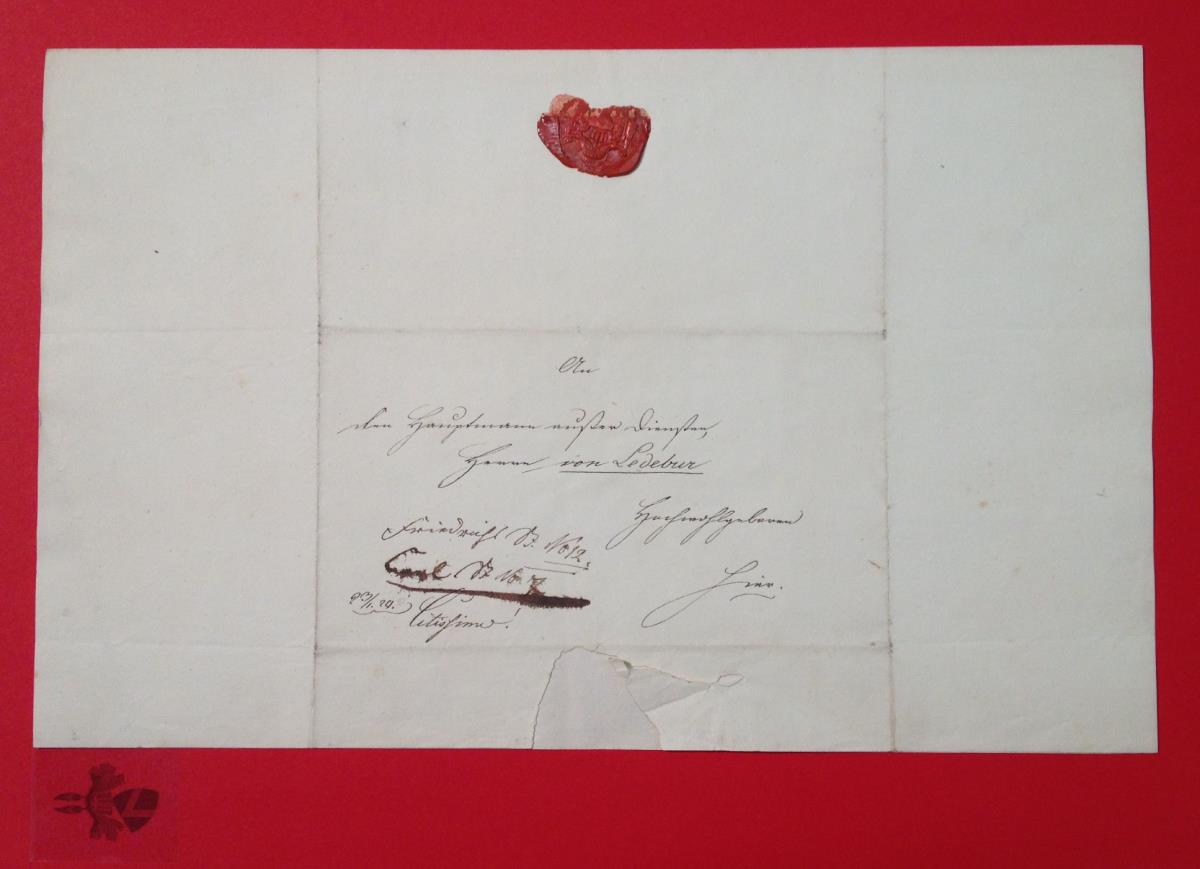 An
den Hauptmann außer Diensten,
Herrn von Ledebur
Hochwohlgeboren
Friedrichs St. No 12.
Carl St No 7
Hier.
Citissime!